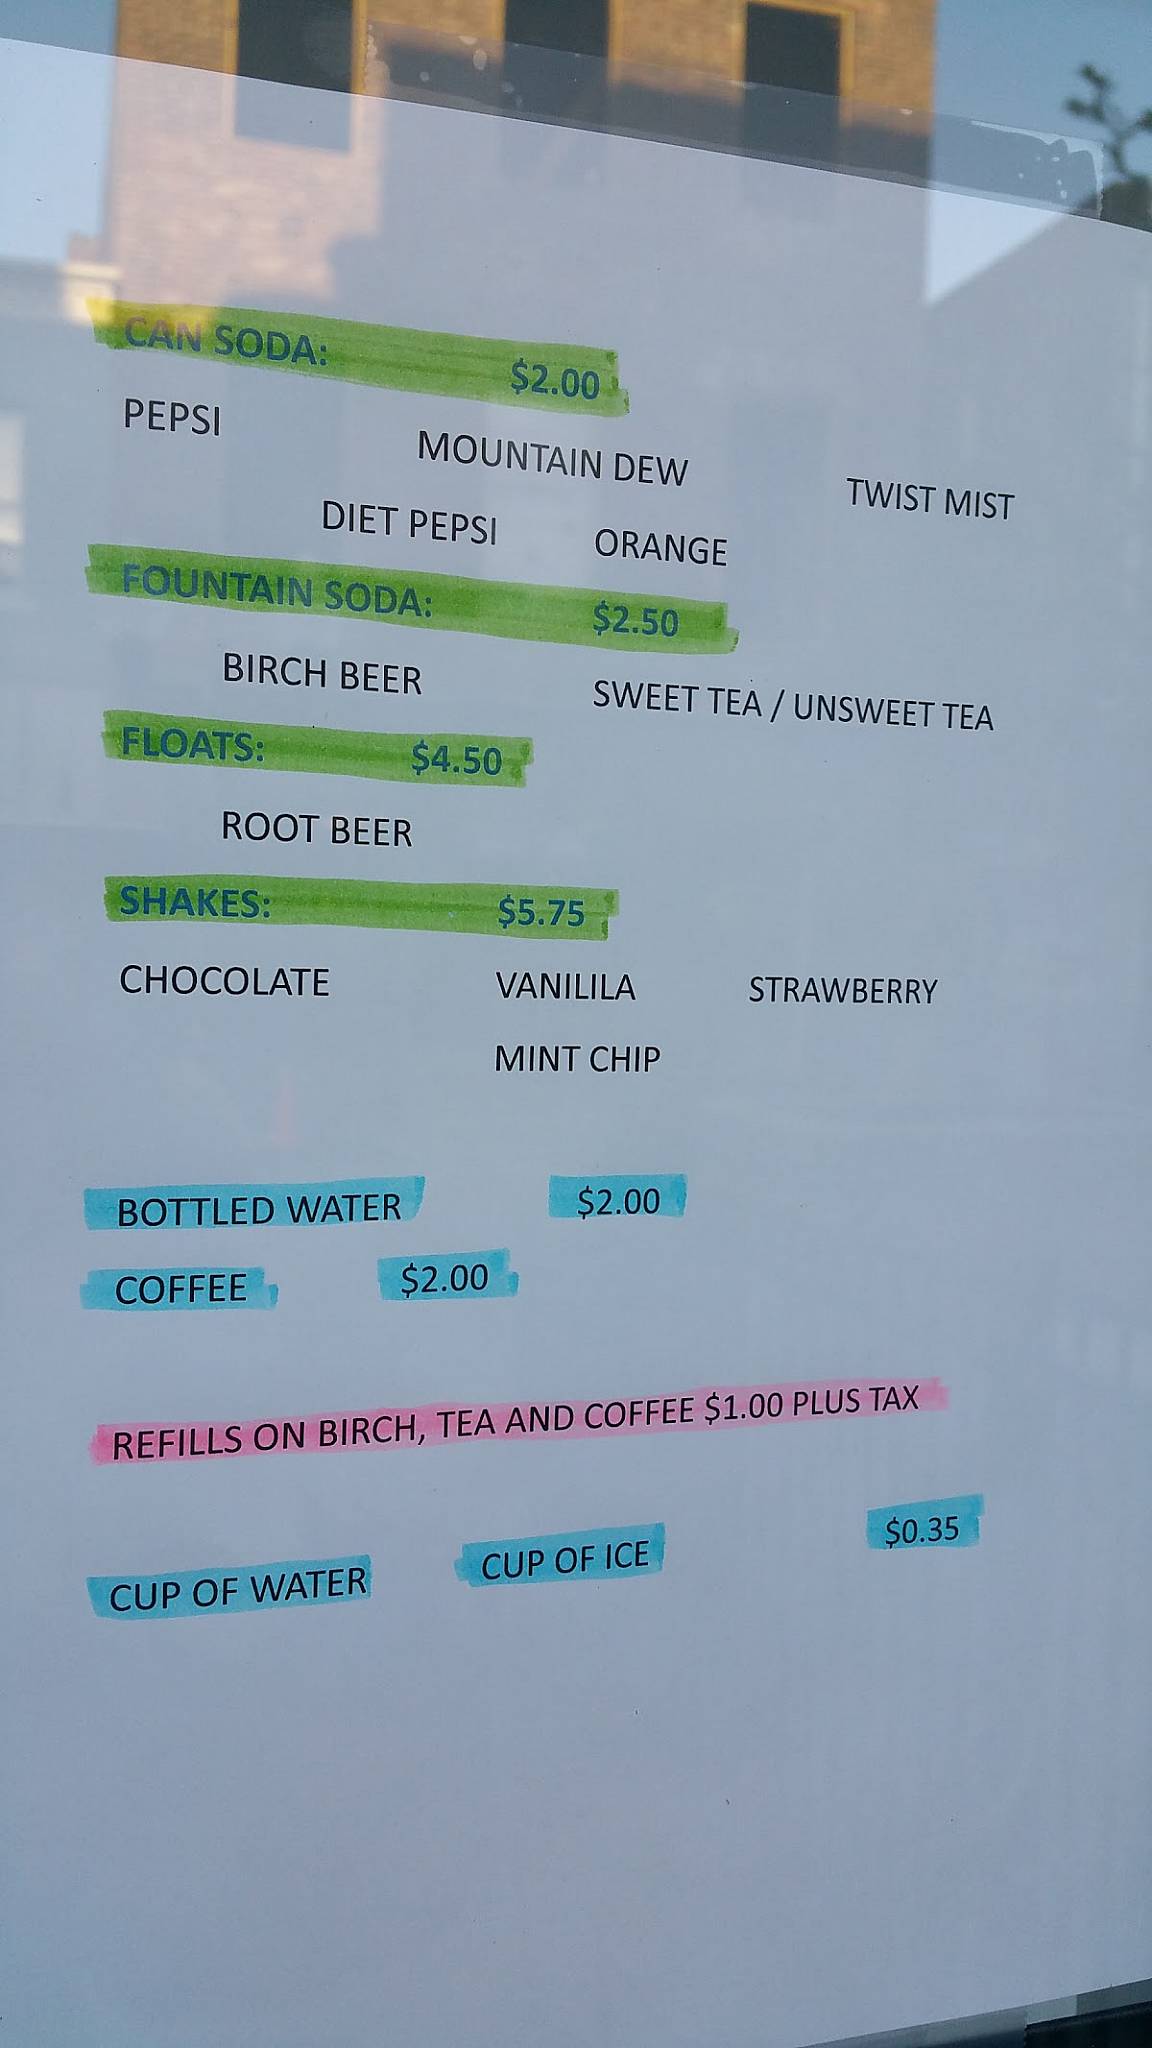 CAN SODA: $2.00
PEPSI MOUNTAIN DEW TWIST MIST
DIET PEPSI ORANGE
FOUNTAIN SODA: $2.50
BIRCH BEER SWEET TEA / UNSWEET TEA
FLOATS: $4.50
ROOT BEER
SHAKES: $5.75
CHOCOLATE VANILILA STRAWBERRY
MINT CHIP
BOTTLED WATER $2.00
COFFEE $2.00
REFILLS ON BIRCH, TEA AND COFFEE $1.00 PLUS TAX
CUP OF WATER CUP OF ICE $0.35